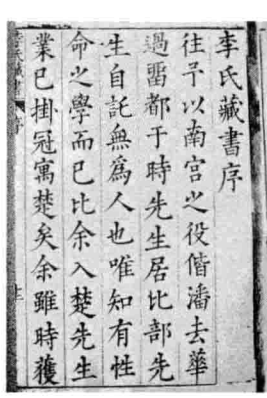 李氏藏書序
往予以南宫之役偕潘去華
過畱都于時先生居比部先
生自託無爲人也唯知有性
命之學而已比余入楚先生
業已掛冠寓楚矣余雖時獲